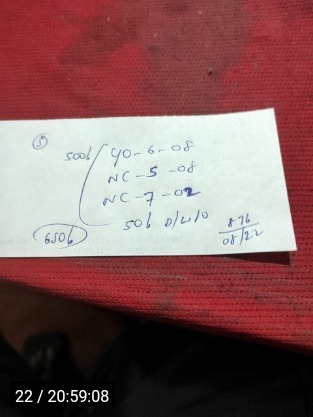 5
500b 40-6-08
NC-5-08
NC-7-02
50b D/4/0
650b
876
08/22
22 / 20:59:08